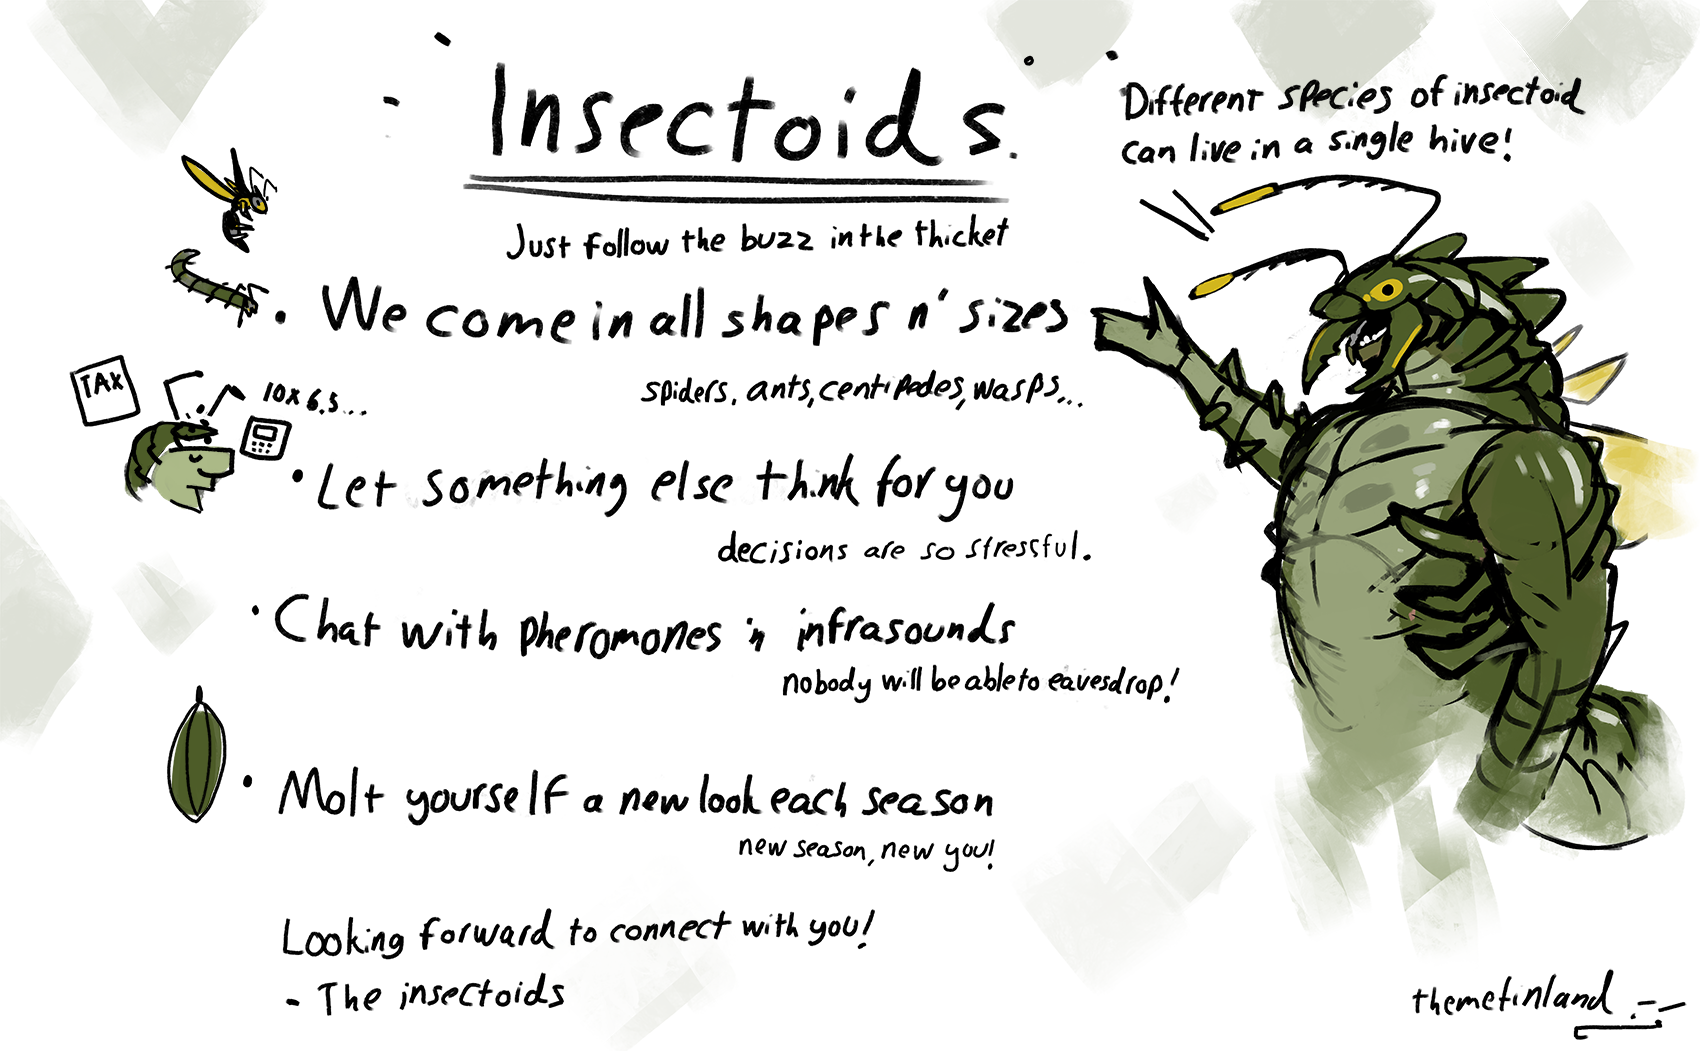 Insectoids.
Different species of insectoid
can live in a single hive!
Just follow the buzz in the thicket
• We come in all shapes n' sizes
spiders, ants, centipedes, wasps...
TAX
10x6.5...
• Let something else think for you
decisions are so stressful.
• Chat with pheromones 'n infrasounds
nobody will be able to eavesdrop!
• Molt yourself a new look each season
new season, new you!
Looking forward to connect with you!
- The insectoids
themefinland